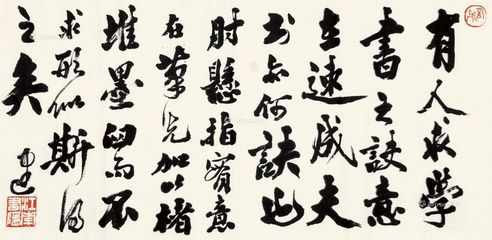 有人求學
書之訣意
在速成夫
书亦何訣也
肘懸指實意
在筆先加以楮
堆墨不
求形似斯得
之矣